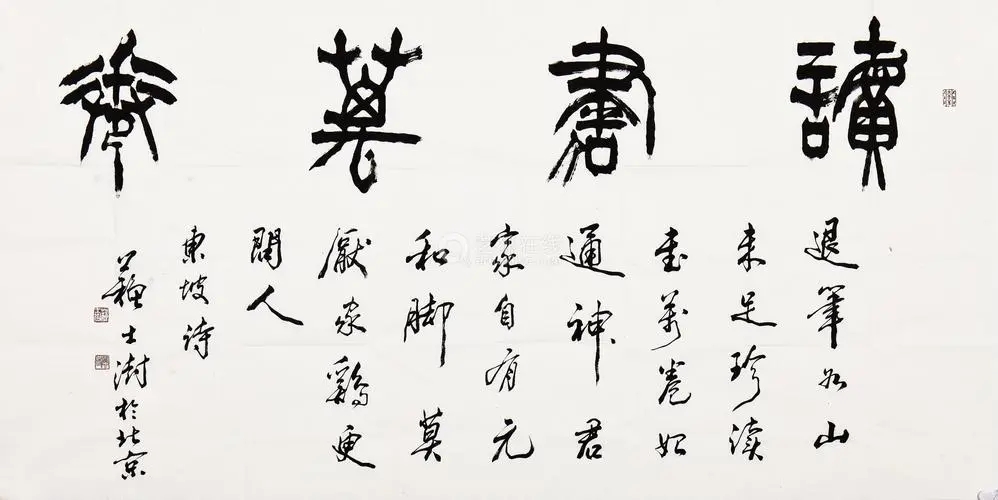 讀書萬卷
退筆如山
未足珍读
書萬卷始
通神君
家自有元
和脚莫
厭家鷄更
問人
東坡诗
蘇士澍於北京